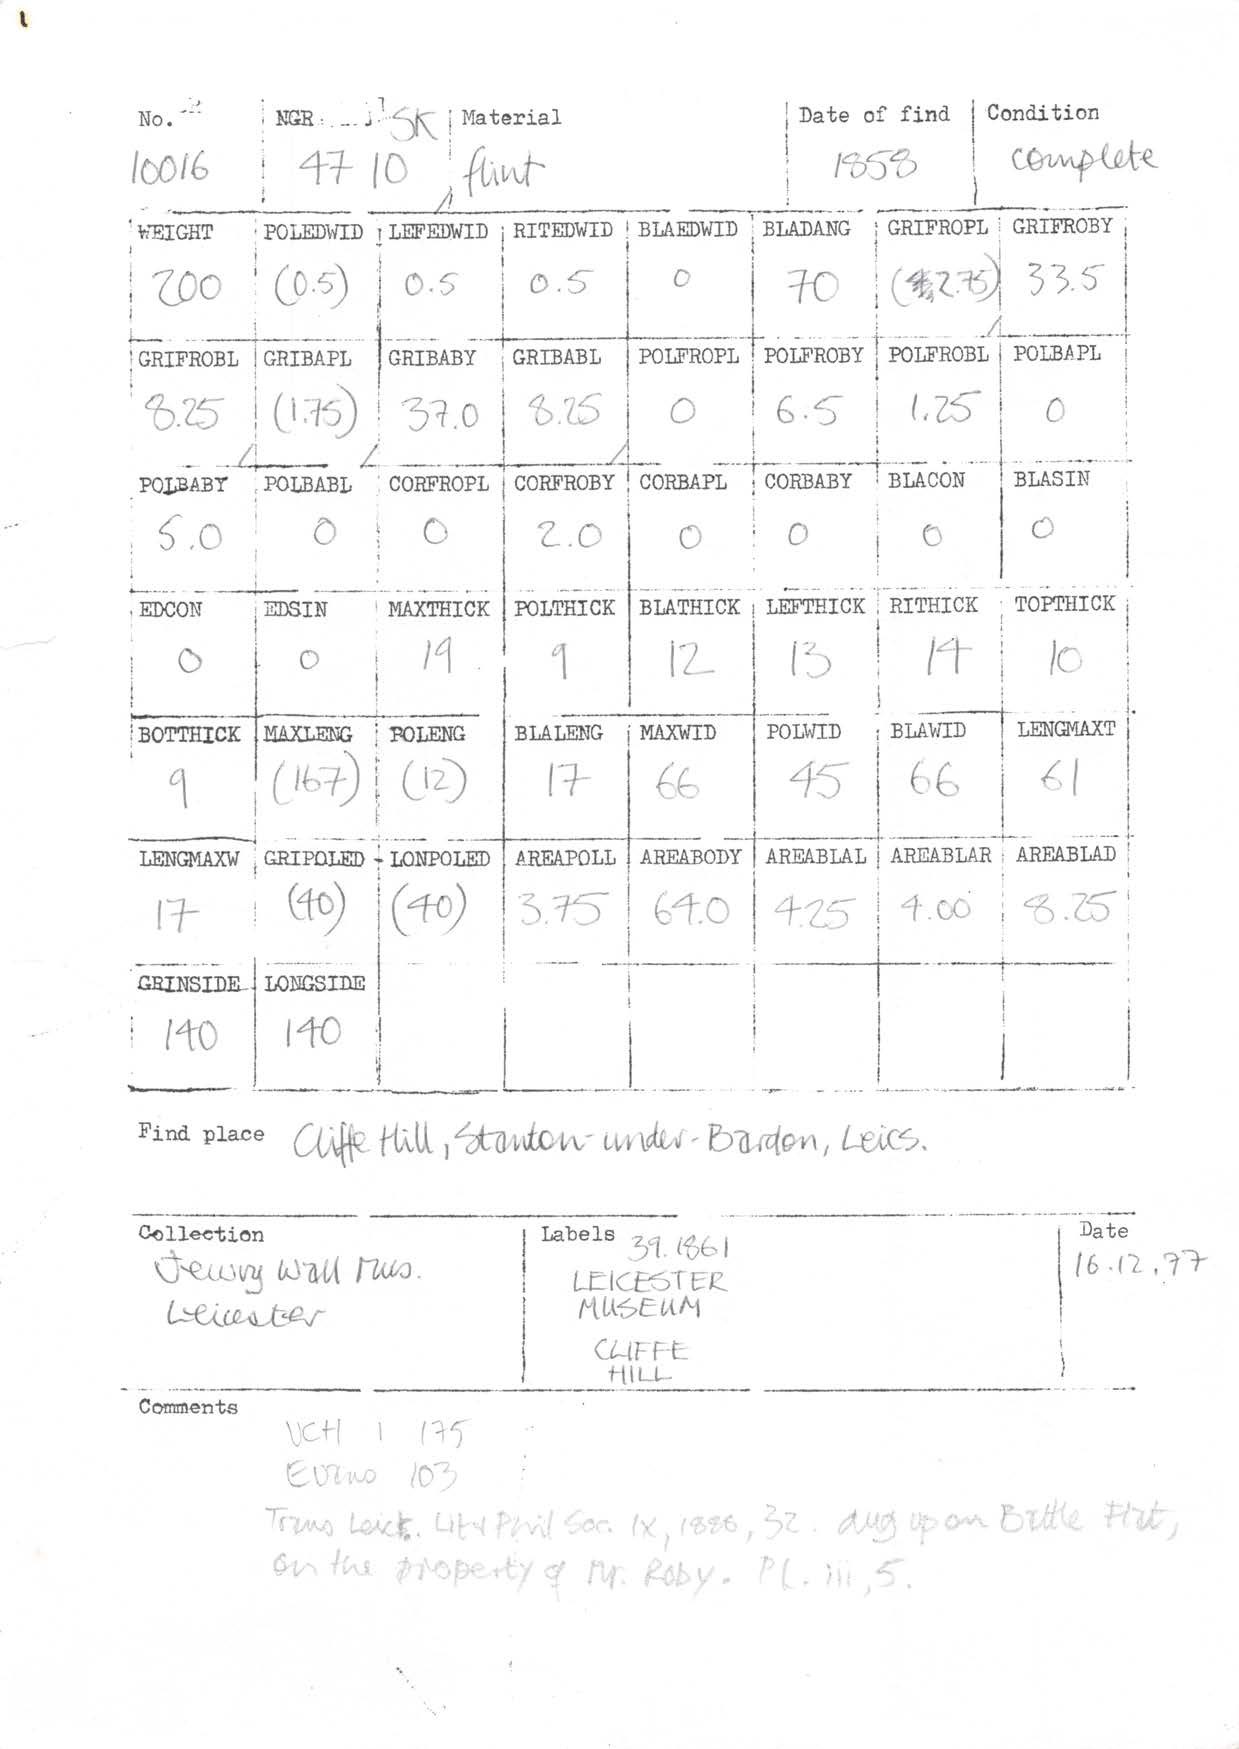 1
No. NGR SK Material Date of find Condition
10016 47 10 flint 1858 complete
WEIGHT POLEDWID LEFEDWID RITEDWID BLAEDWID BLADANG GRIFROPL GRIFROBY
200 (0.5) 0.5 0.5 0 70 (2.75) 33.5
GRIFROBL GRIBAPL GRIBABY GRIBABL POLFROPL POLFROBY POLFROBL POLBAPL
8.25 (1.75) 37.0 8.25 0 6.5 1.25 0
POLBABY POLBABL CORFROPL CORFROBY CORBAPL CORBABY BLACON BLASIN
5.0 0 0 2.0 0 0 0 0
EDCON EDSIN MAXTHICK POLTHICK BLATHICK LEFTHICK RITHICK TOPTHICK
0 0 19 9 12 13 14 10
BOTTHICK MAXLENG POLENG BLALENG MAXWID POLWID BLAWID LENGMAXT
9 (167) (12) 17 66 45 66 61
LENGMAXW GRIPOLED LONPOLED AREAPOLL AREABODY AREABLAL AREABLAR AREABLAD
17 (40) (40) 3.75 64.0 4.25 4.00 8.25
GRINSIDE LONGSIDE
140 140
Find place Cliffe Hill, Stanton-under-Bardon, Leics.
Collection Labels 39.1861 Date
Jewry Wall Mus. LEICESTER 16.12.77
Leicester MUSEUM
CLIFFE
HILL
Comments
VCH 1 175
Evans 103
Trans Leics. Lit & Phil Soc. IX, 1886, 32. dug up on Battle Flat,
on the property of Mr. Roby. Pl. iii, 5.